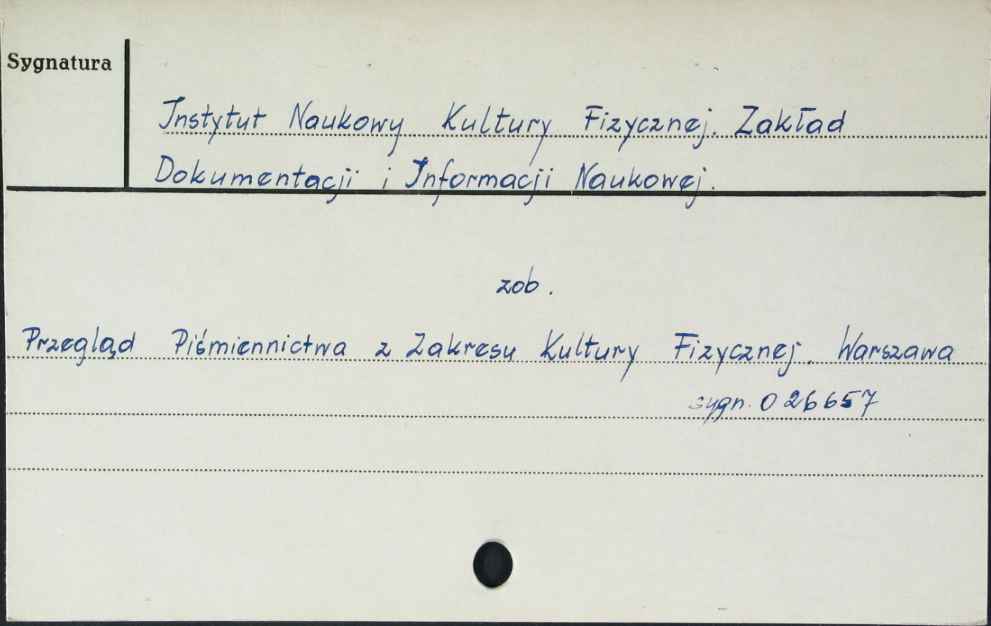 Sygnatura
Instytut Naukowy Kultury Fizycznej. Zakład
Dokumentacji i Informacji Naukowej.
zob.
Przegląd Piśmiennictwa z Zakresu Kultury Fizycznej. Warszawa
sygn. 026657